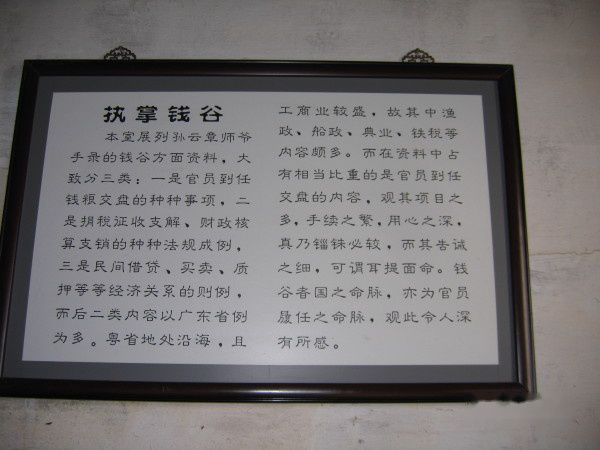 执掌钱谷
本室展列孙云章师爷
手录的钱谷方面资料，大
致分三类：一是官员到任
钱粮交盘的种种事项，二
是捐税征收支解、财政核
算支销的种种法规成例，
三是民间借贷、买卖、质
押等等经济关系的则例，
而后二类内容以广东省例
为多。粤省地处沿海，且
工商业较盛，故其中渔
政、船政、典业、铁税等
内容颇多。而在资料中占
有相当比重的是官员到任
交盘的内容，观其项目之
多，手续之繁，用心之深，
真乃锱铢必较，而其告诫
之细，可谓耳提面命。钱
谷者国之命脉，亦为官员
履任之命脉，观此令人深
有所感。